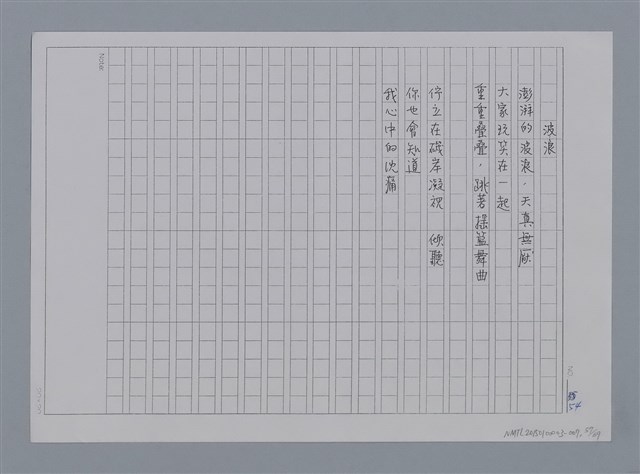 波浪
澎湃的波浪，天真無厭
大家玩笑在一起
重重疊疊，跳著搖籃舞曲
佇立在礁岸凝視 傾聽
你也會知道
我心中的沈痛
54